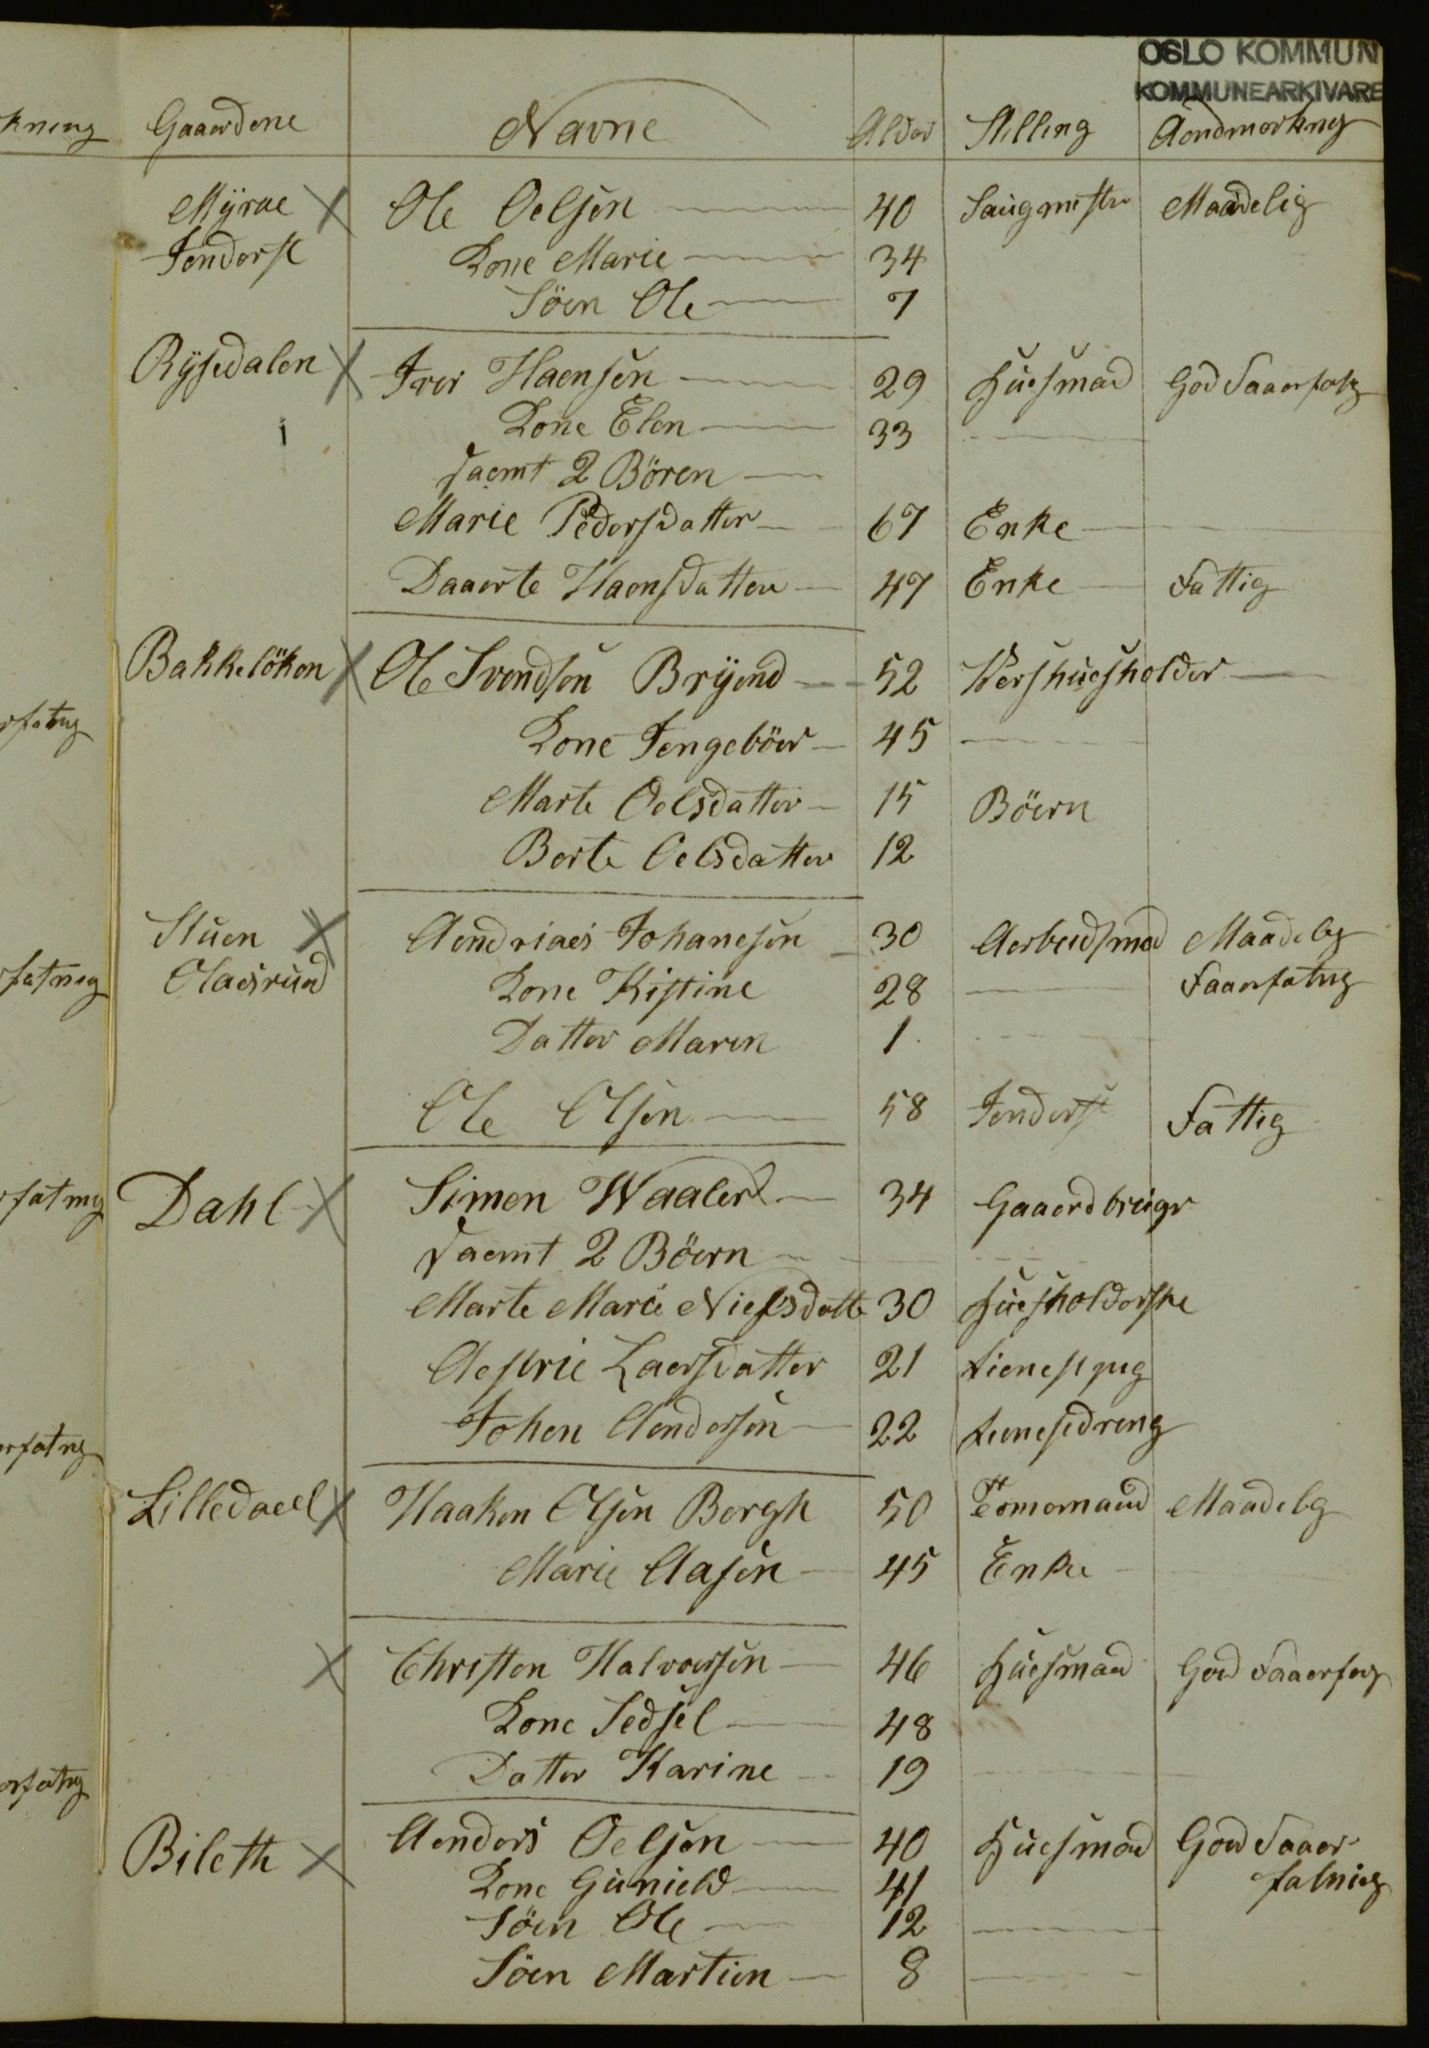 OSLO KOMMUN
KOMMUNEARKIVARE
kning Gaaerdene Navne Alder Stilling Aendmerkng
Mÿrae X Ole Oelsen 40 Saugmester Maadelig
Jenderst Kone Marie 34
Söen Ole 7
Rÿsedalen X Iver Haensen 29 Huesmad God Faaerfatg
Kone Elen 33
saemt 2 Bören
Marie Pedersdatter 67 Enke
Daaerte Haensdatter 47 Enke Fattig
Bakkelöken X Ole Svendsen Brÿend 52 Vershuesholder
Kone Jengeböer 45
Marte Oelsdatter 15 Böern
Berte Oelsdatter 12
Stuen X Aendriaes Johanesen 30 Aerbeidsmad Maadelig
Olaesrud Kone Kistine 28 Faaerfatng
Datter Maren 1
Ole Olsen 58 Jenderst Fattig
Dahl X Simen Waaler 34 Gaaerdbruiger
saemt 2 Böern
Marte Marie Nielsdatte 30 Huesholderske
Aestrie Laersdatter 21 tienestpig
Johen Aendersen 22 tienestdreng
Lilledael X Haaken Olsen Bergh 50 Maadelig
Marie Aasen 45 Enke
X Christen Halvorsen 46 Huesmand God Faaerfatg
Kone Sedsel 48
Datter Karine 19
Bileth X Aenders Oelsen 40 Huesmad God Faaer-
Kone Gunield 41 fatnieg
Söen Ole 12
Söen Martien 8